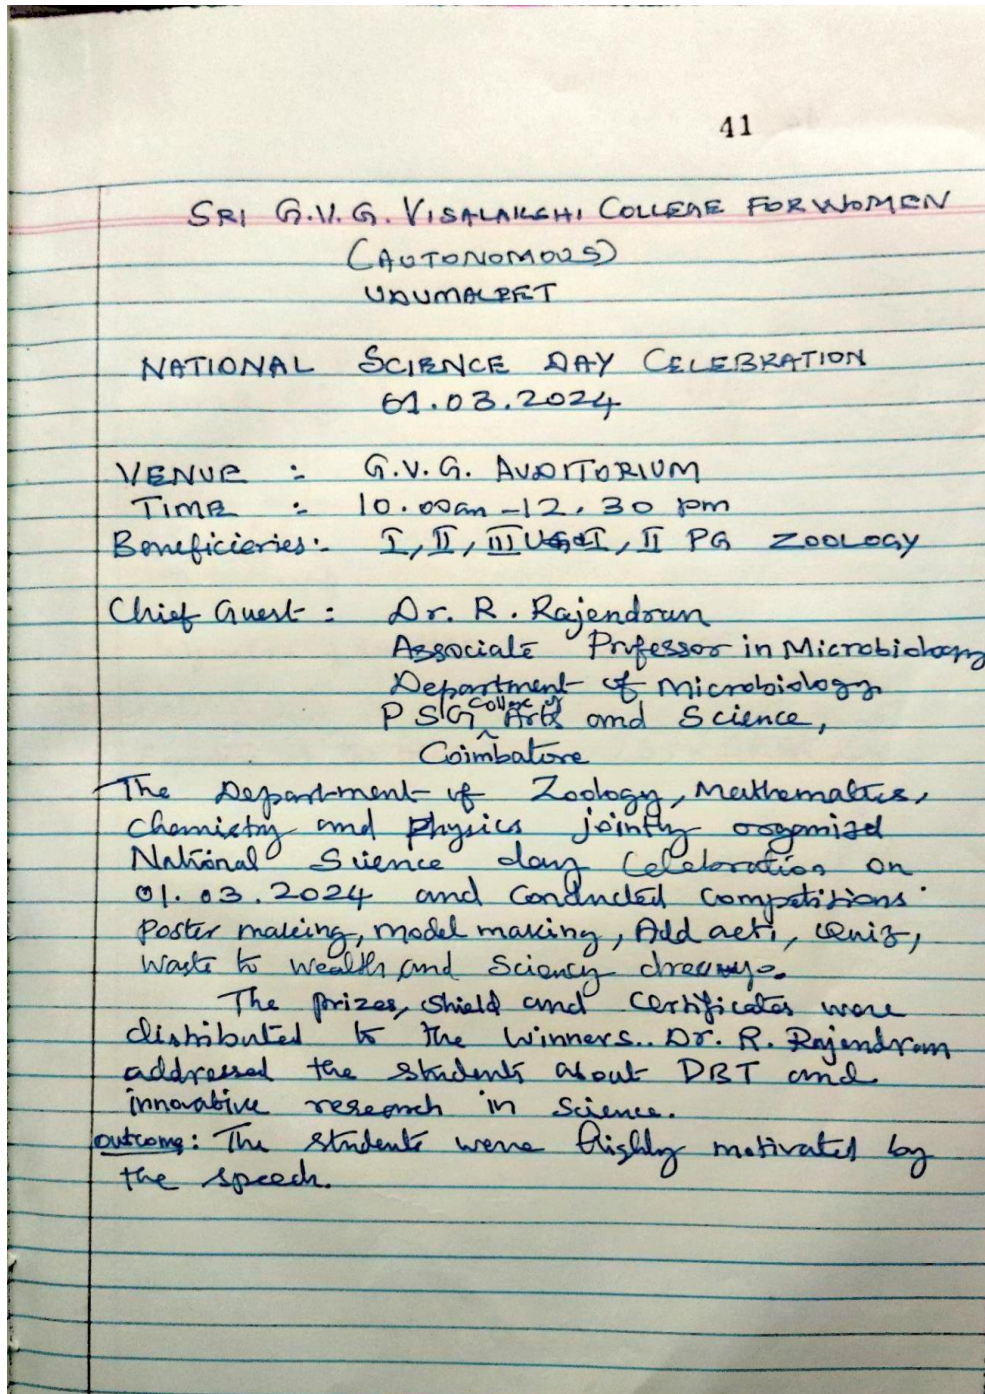 41
SRI G.V.G. VISALAKSHI COLLEGE FOR WOMEN
(AUTONOMOUS)
UDUMALPET
NATIONAL SCIENCE DAY CELEBRATION
01.03.2024
VENUE : G.V.G. AUDITORIUM
TIME : 10.00am - 12.30 pm
Beneficieries: I, II, III UG & I, II PG ZOOLOGY
Chief Guest : Dr. R. Rajendran
Associate Professor in Microbiology
Department of Microbiology
PSG College of Arts and Science,
Coimbatore
The Department of Zoology, Mathematics,
Chemistry and Physics jointly organized
National Science day Celebration on
01.03.2024 and Conducted Competitions
Poster making, model making, Add acti, Quiz,
Waste to wealth and Science
The prizes, Shield and Certificates were
distributed to the winners.. Dr. R. Rajendran
addressed the students about DBT and
innovative research in Science.
Outcome: The students were highly motivated by
the speech.